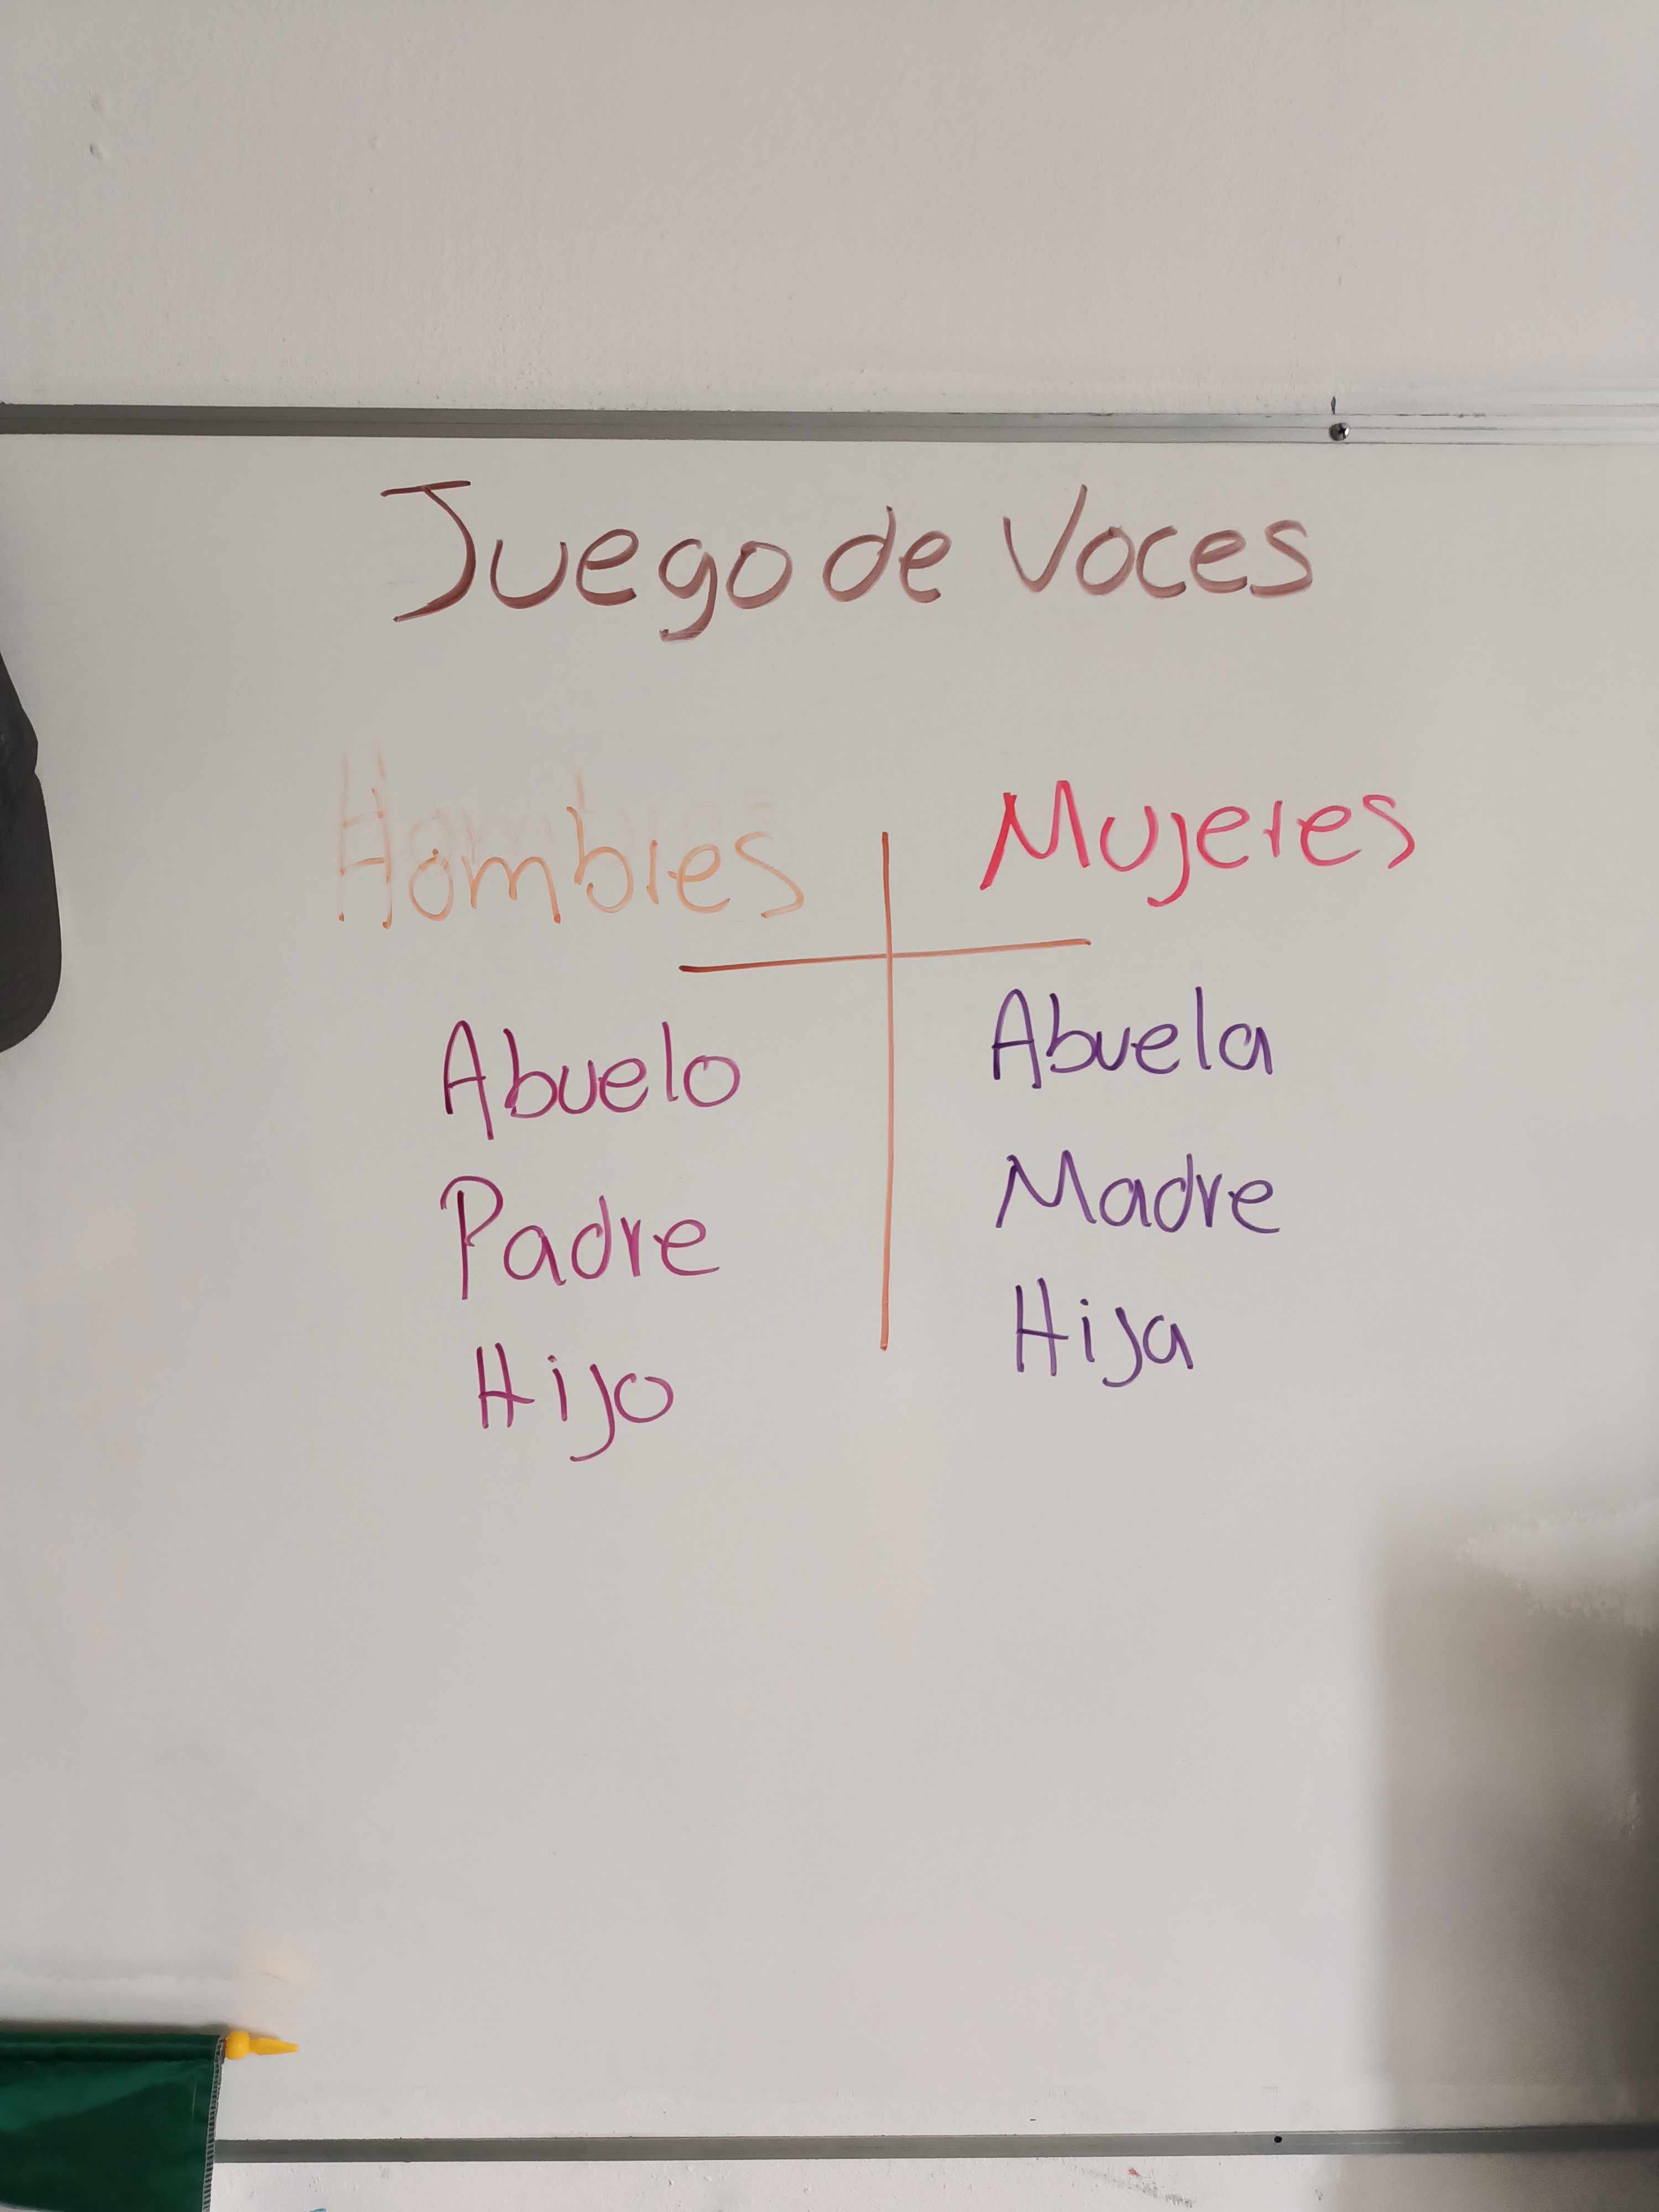 Juego de Voces
Hombres Mujeres
Abuelo Abuela
Padre Madre
Hijo Hija